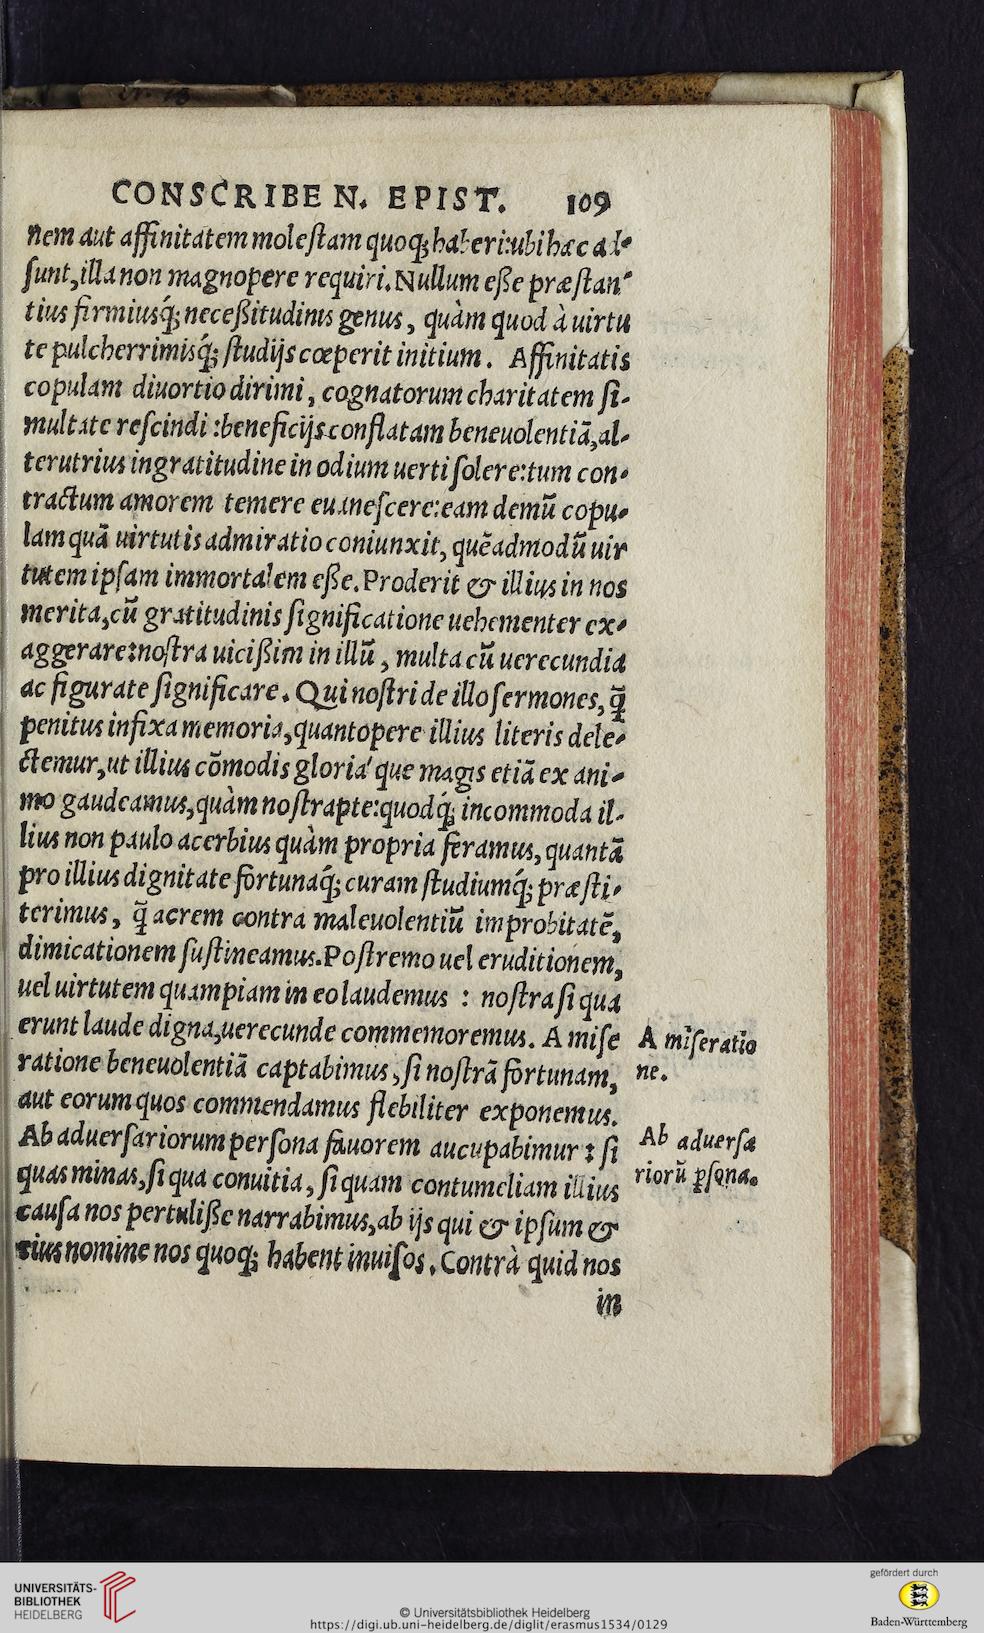 CONSCRIBEN. EPIST. 109
nem aut affinitatem moleſtam quoq; haberi: ubi hæc ad-
ſunt, illa non magnopere requiri. Nullum eße præſtan-
tius firmiusq́; neceßitudinis genus, quàm quod à uirtu
te pulcherrimisq́; ſtudijs cœperit initium. Affinitatis
copulam diuortio dirimi, cognatorum charitatem ſi-
multate reſcindi: beneficijs conflatam beneuolentiā, al-
terutrius ingratitudine in odium uerti ſolere: tum con-
tractum amorem temere euaneſcere: eam demū copu-
lam quā uirtutis admiratio coniunxit, quēadmodū uir
tutem ipſam immortalem eße. Proderit & illius in nos
merita, cū gratitudinis ſignificatione uehementer ex-
aggerare: noſtra uicißim in illū, multa cū uerecundia
ac figurate ſignificare. Qui noſtri de illo ſermones, q̄
penitus infixa memoria, quantopere illius literis dele-
ctemur, ut illius cōmodis gloria'que magis etiā ex ani-
mo gaudeamus, quàm noſtrapte: quodq́; incommoda il-
lius non paulo acerbius quàm propria feramus, quantā
pro illius dignitate fortunaq́; curam ſtudiumq́; præſti-
terimus, q̄ acrem contra maleuolentiū improbitatē,
dimicationem ſuſtineamus. Poſtremo uel eruditionem,
uel uirtutem quampiam in eo laudemus : noſtra ſi qua
erunt laude digna, uerecunde commemoremus. A miſe
ratione beneuolentiā captabimus, ſi noſtrā fortunam,
aut eorum quos commendamus flebiliter exponemus.
Ab aduerſariorum perſona fauorem aucupabimur : ſi
quas minas, ſi qua conuitia, ſi quam contumeliam illius
cauſa nos pertuliße narrabimus, ab ijs qui & ipſum &
eius nomine nos quoq; habent inuiſos. Contrà quid nos
in
A miſeratio
ne.
Ab aduerſa
riorū pſona.
UNIVERSITÄTS-
BIBLIOTHEK
HEIDELBERG
© Universitätsbibliothek Heidelberg
https://digi.ub.uni-heidelberg.de/diglit/erasmus1534/0129
gefördert durch
Baden-Württemberg